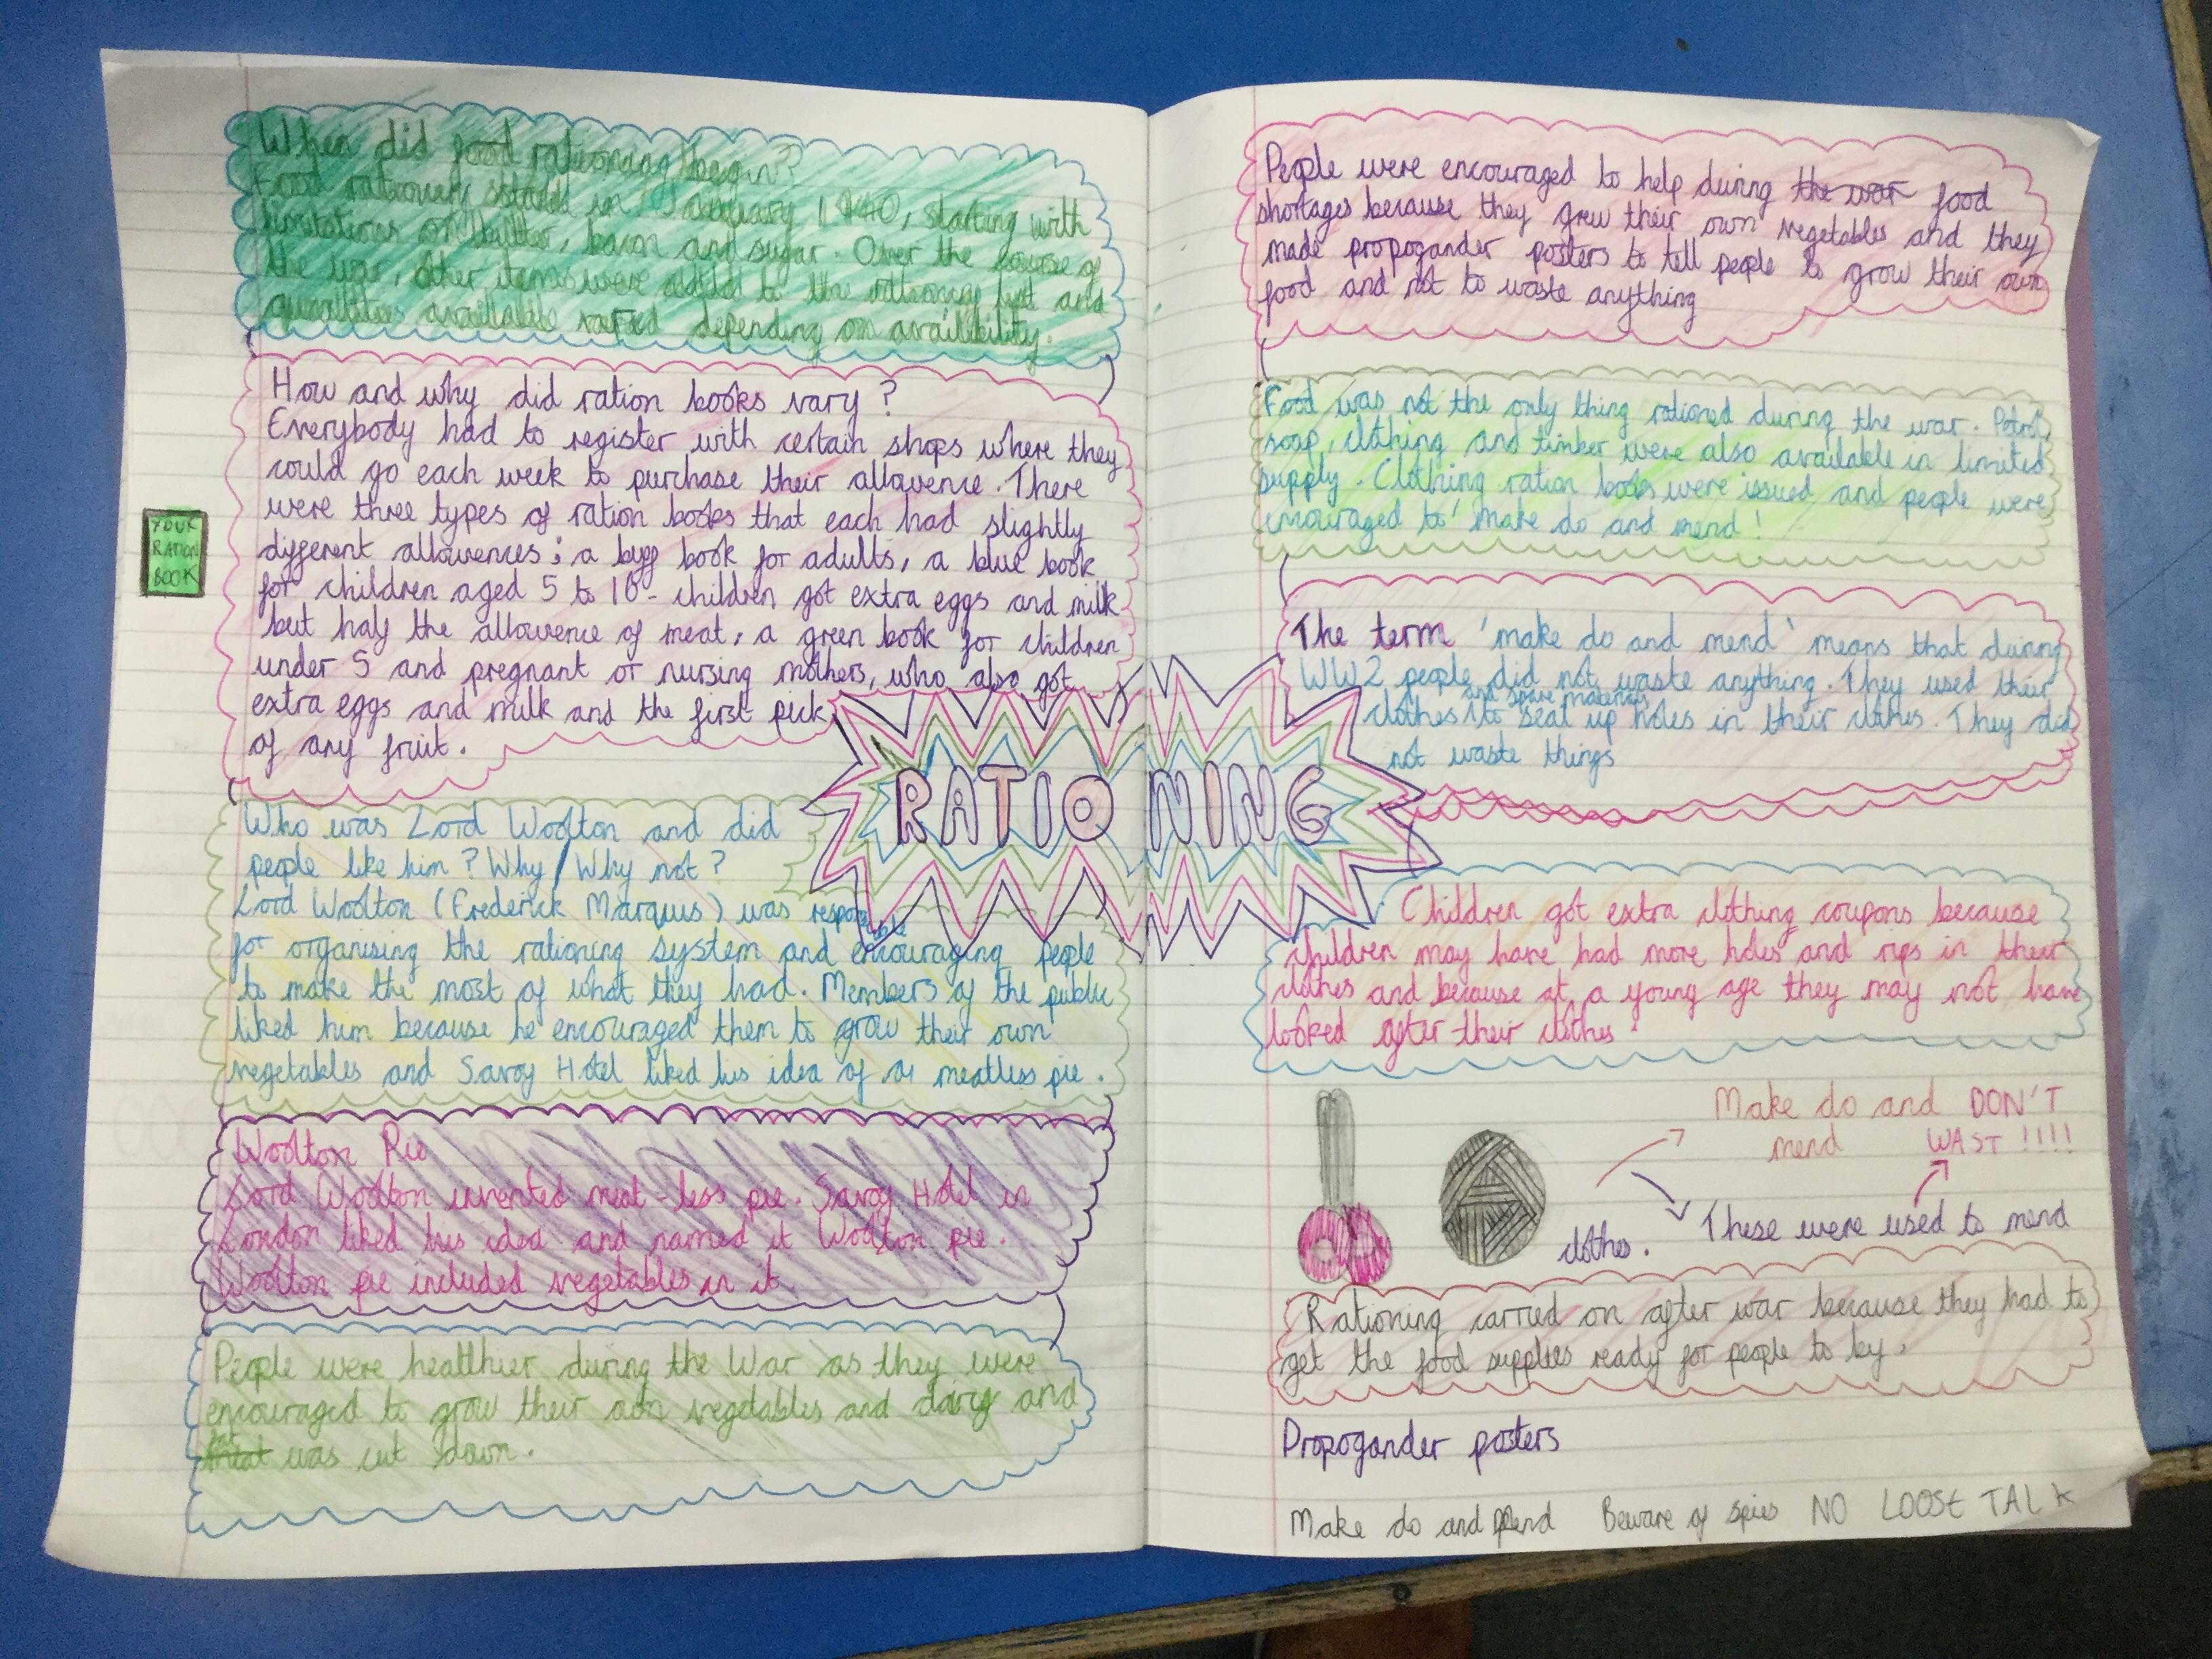 When did food rationing begin?
Food rationing started in January 1940, starting with
limitations on butter, bacon and sugar. Over the course of
the war, other items were added to the rationing list and
quantities available varied depending on availibility.
How and why did ration books vary?
Everybody had to register with certain shops where they
could go each week to purchase their allowence. There
were three types of ration books that each had slightly
different allowences; a buff book for adults, a blue book
for children aged 5 to 16- children got extra eggs and milk
but half the allowence of meat, a green book for children
under 5 and pregnant or nursing mothers, who also got
extra eggs and milk and the first pick
of any fruit.
YOUR
RATION
BOOK
Who was Lord Woolton and did
people like him? Why/Why not?
Lord Woolton (Frederick Marquis) was responsible
for organising the rationing system and encouraging people
to make the most of what they had. Members of the public
liked him because he encouraged them to grow their own
vegetables and Savoy Hotel liked his idea of a meatless pie.
Woolton Pie
Lord Woolton invented meat-less pie. Savoy Hotel in
London liked his idea and named it Woolton pie.
Woolton pie included vegetables in it.
People were healthier during the War as they were
encouraged to grow their own vegetables and dairy and
was cut down.
RATIONING
People were encouraged to help during the war food
shortages because they grew their own vegetables and they
made propogander posters to tell people to grow their own
food and not to waste anything
Food was not the only thing rationed during the war. Petrol,
soap, clothing and timber were also available in limited
supply. Clothing ration books were issued and people were
encouraged to 'make do and mend!
The term 'make do and mend' means that during
WW2 people did not waste anything. They used their
and spare materials
clothes to seal up holes in their clothes. They did
not waste things
Children got extra clothing coupons because
children may have had more holes and rips in their
clothes and because at a young age they may not have
looked after their clothes.
Make do and
mend
DON'T
WAST !!!!
These were used to mend
clothes.
Rationing carried on after war because they had to
get the food supplies ready for people to by.
Propogander posters
Make do and Mend Beware of spies NO LOOSE TALK